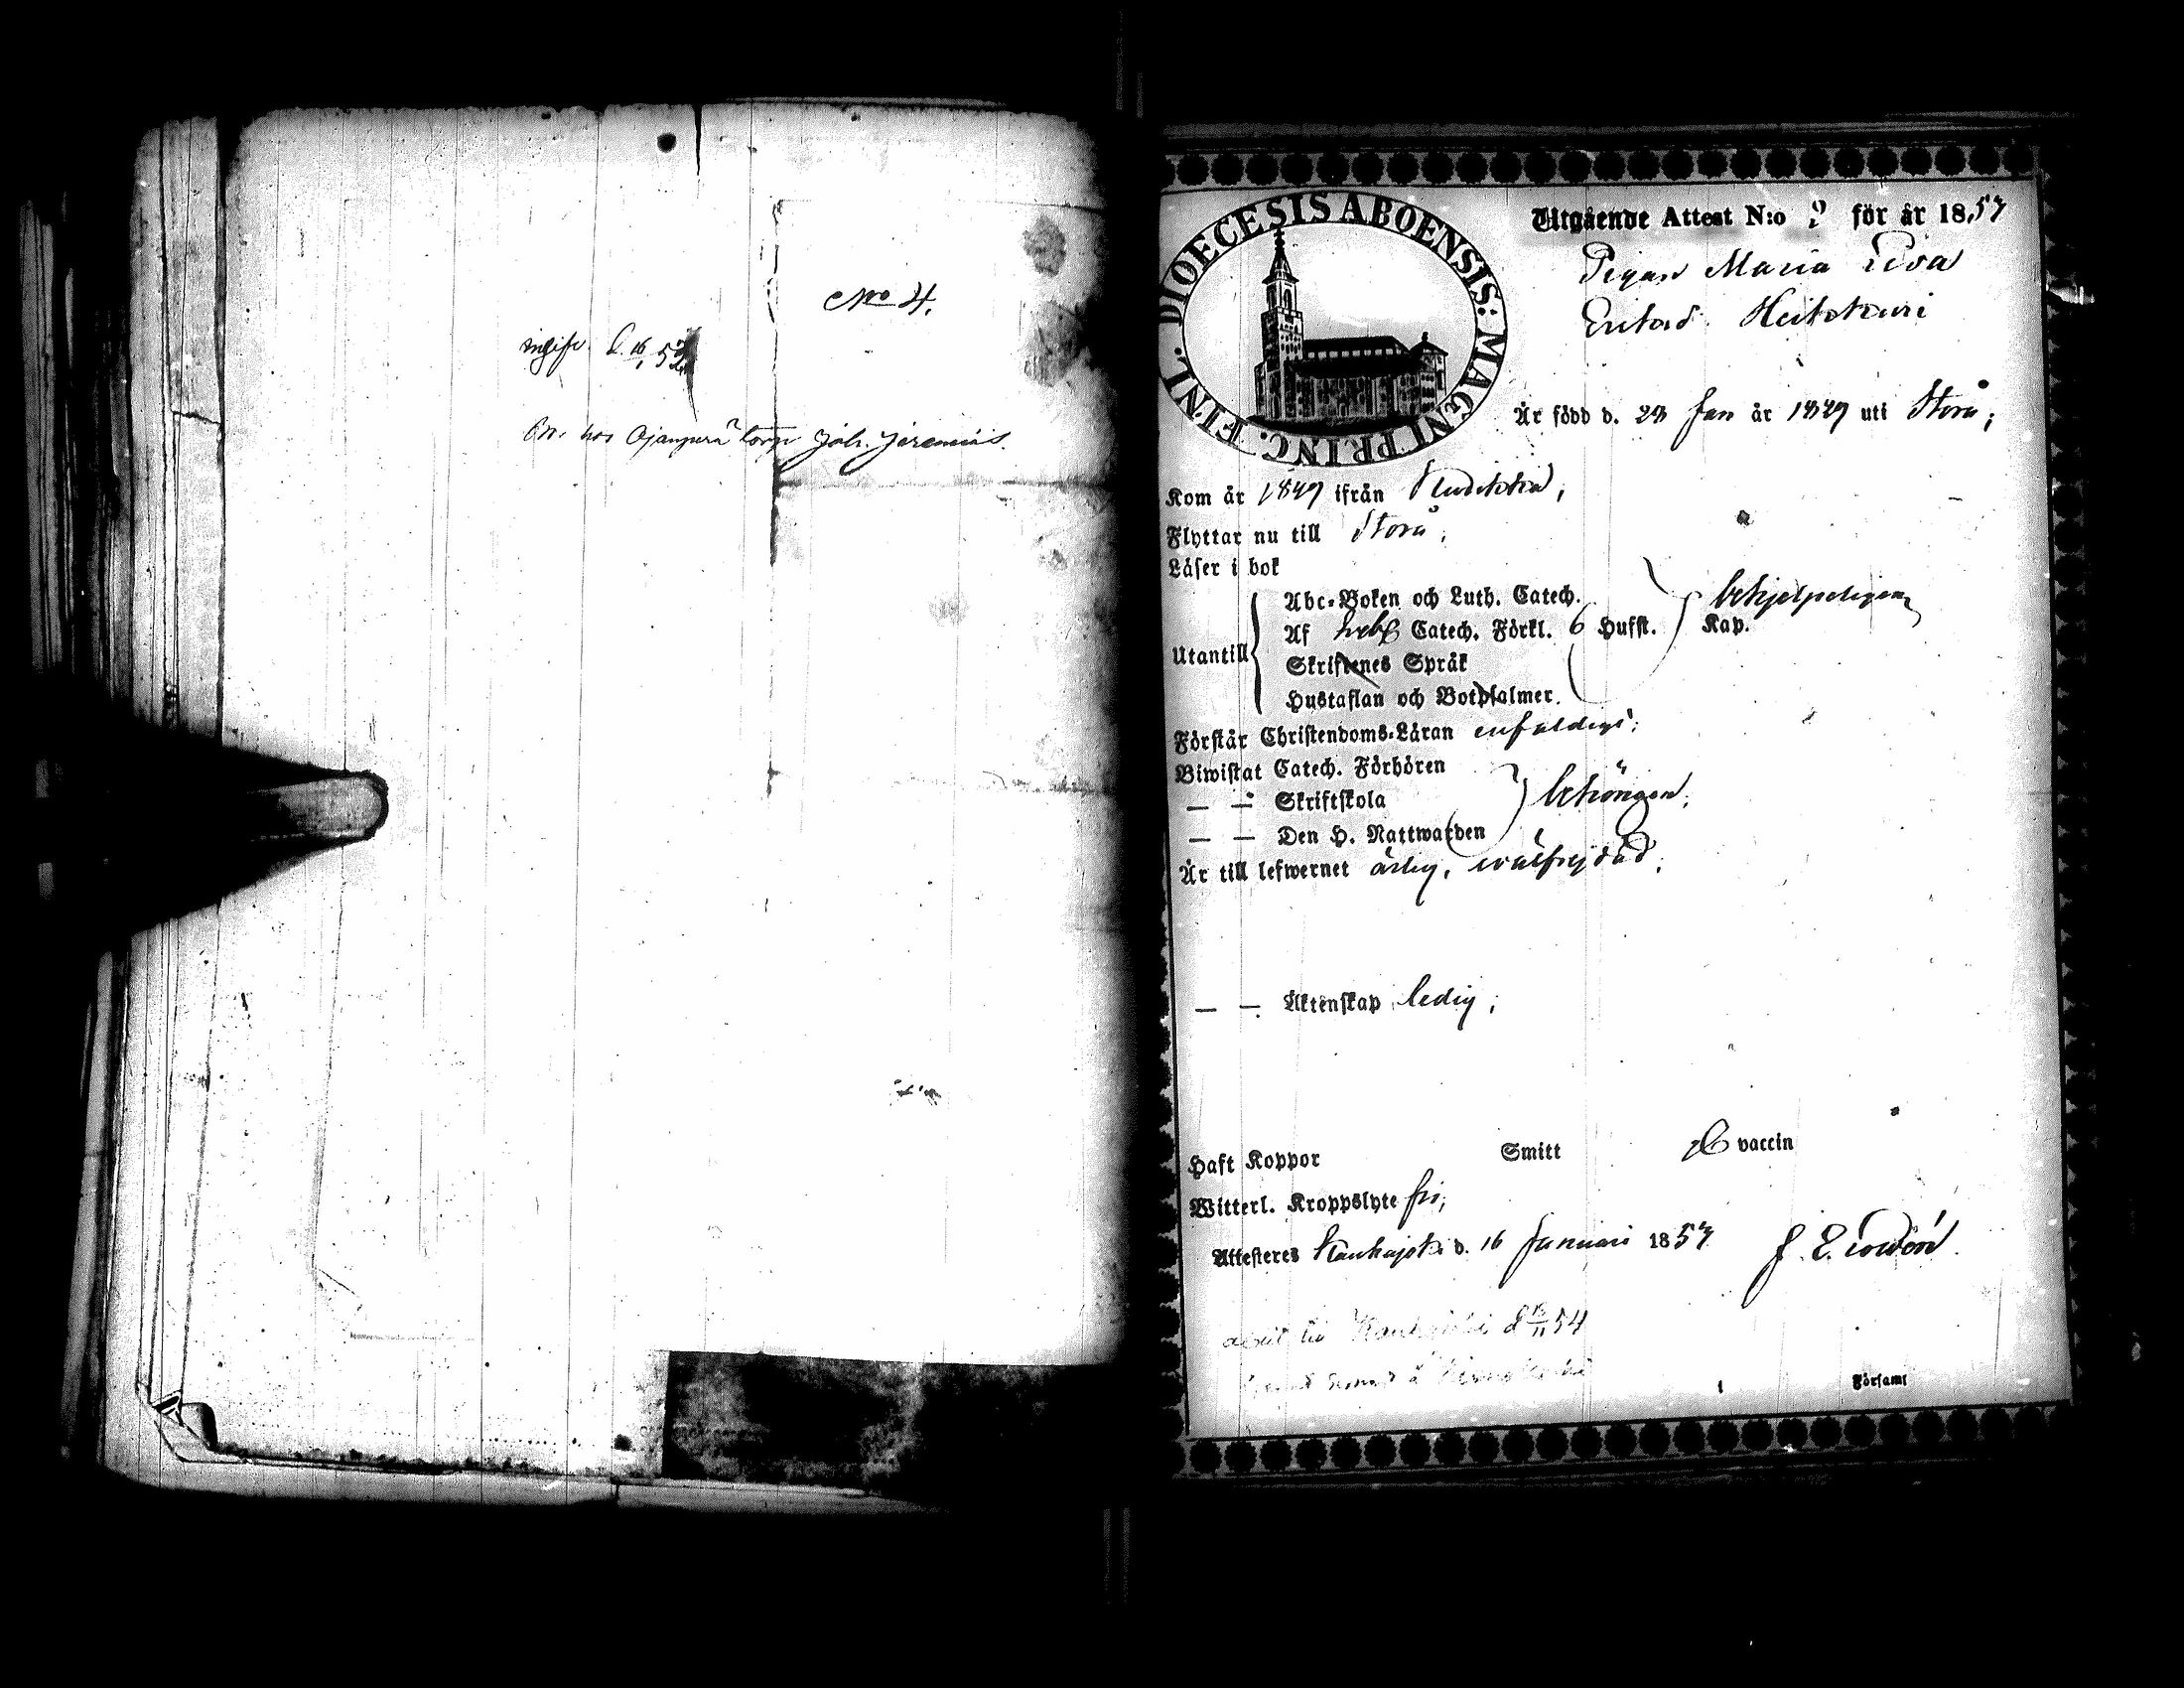 No 4.
ingifv. d. 16/1 53
hos Ojanperä torp Joh. Jeremias.
DIOECESIS ABOENSIS: MAGNI PRINC. FINL.
Utgående Attest N:o 9 för år 1853
Pigan Maria Eva
Ericsd. Heikkuri
Är född d. 23 Jan år 1829 uti Storå;
Kom år 1849 ifrån
Flyttar nu till Storå;
Läser i bok
Utantill
Abc-Boken och Luth. Catech.
Af Catech. Förkl. 6 Hufst. Kap. behjelpeligen
Skriftenes Språk
Hustaflan och Botpsalmer.
Förstår Christendoms-Läran enfaldigt;
Biwistat Catech. Förhören
— — Skriftskola behörigen;
— — Den H. Nattwarden
Är till lefwernet ärlig, wälfrejdad;
— — Äktenskap ledig;
Haft Koppor Smitt vaccin
Witterl. Kroppslyte fri;
Attesteres Kauhajoki d. 16 Januari 1853
till Kauhajoki d 54
Församl